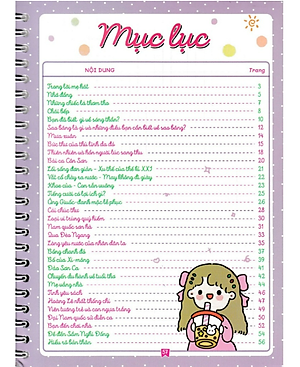 Mục lục
NỘI DUNG Trang
Trong lời mẹ hát 3
Nhớ đồng 5
Những chiếc lá thơm tho 7
Chái bếp 8
Bạn đã biết gì về sóng thần? 9
Sao băng là gì và những điều bạn cần biết về sao băng? 12
Mưa xuân 14
Bức thư của thủ lĩnh da đỏ 15
Thiên nhiên và hồn người lúc sang thu 18
Bài ca Côn Sơn 20
Lối sống đơn giản - Xu thế của thế kỉ XXI 21
Vắt cổ chày ra nước - May không đi giày 22
Khoe của - Con rắn vuông 23
Tiếng cười có lợi ích gì? 24
Ông Giuốc-đanh mặc lễ phục 26
Cái chúc thư 28
Loại vi trùng quý hiếm 30
Nam quốc sơn hà 31
Qua Đèo Ngang 33
Lòng yêu nước của nhân dân ta 35
Bồng chanh đỏ 35
Bố của Xi-mông 36
Đảo Sơn Ca 37
39
Mẹ vắng nhà 44
Tình yêu sách 46
Hoàng Lê nhất thống chí 47
Viên tướng trẻ và con ngựa trắng 50
Đại Nam quốc sử diễn ca 51
Bến đến chơi nhà 53
Đề đền Sầm Nghi Đống 54
Hiểu rõ bản thân 56